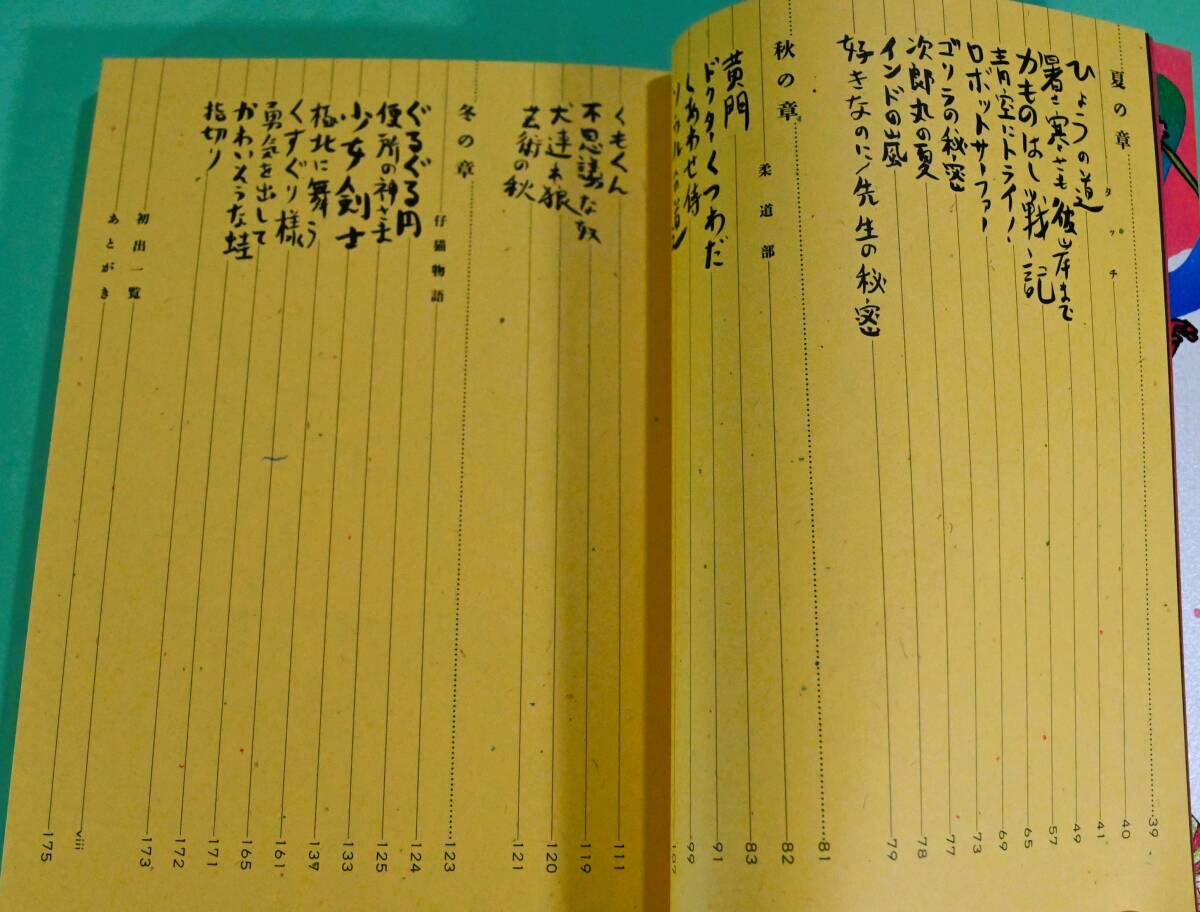 夏の章 39
タッチ 40
ひょうの道 41
暑さ寒さも彼岸まで 49
かものはし戦記 57
青空にトライ! 65
ロボットサーファー 69
ゴリラの秘密 73
次郎丸の夏 77
インドの嵐 78
好きなのに!先生の秘密 79
秋の章 81
柔道部 82
黄門 83
ドクターくつわだ 91
しあわせ侍 99
くもくん 111
不思議な奴 119
120
芸術の秋 121
冬の章 123
仔猫物語 124
ぐるぐる円 125
便所の神さま 133
少女剣士 139
極北に舞う 161
くすぐり様 165
勇気を出して 171
かわいそうな蛙 172
指切り 173
初出一覧 viii
あとがき 175